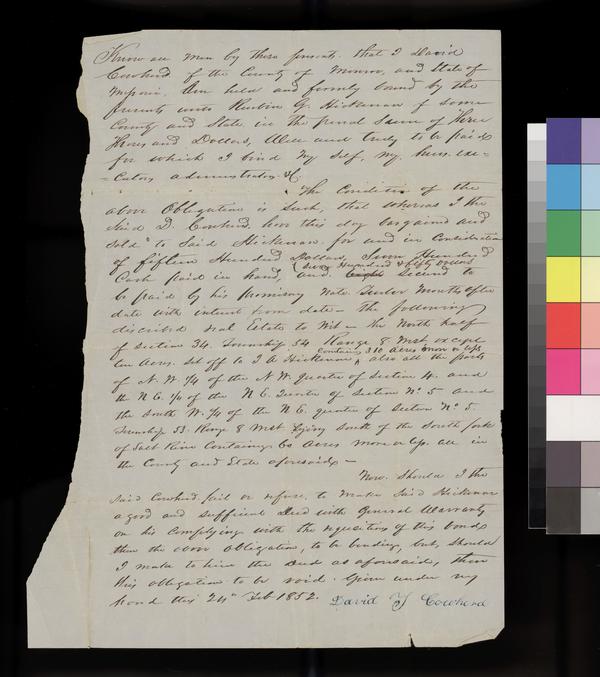 Know all men by these presents that I David
Cowherd of the County of Monroe, and State of
Missouri, Am held and firmly bound by the
presents unto Reubin G. Hickman of same
County and State in the penal Sum of Three
Thousand Dollars, Well and truly to be paid
for which I bind my self, my heirs exe=
=cutors administrators &C.
The Condition of the
above Obligation is Such, that whereas I the
Said D. Cowherd, have this day bargained and
sold to Said Hickman for and in Consideration
of fifteen Hundred Dollars, Seven Hundred
Cash paid in hand, and Second to
(Seven Hundred & fifty Dollars
be paid by his promissory Note Twelve Months after
date with interest from date - the following
described real Estate to Wit - the North half
of Section 34. Township 54 Range 8 West except
ten Acres set off to J A Hickman, also all the parts
Containing 310 Acres more or less
of N. W. 1/4 of the N. W. quarter of Section 4. and
the N E. 1/4 of the N E. Quarter of Section No 5 and
the South W. 1/4 of the N E. quarter of Section No 5.
Township 53. Range 8 West Lying South of the South fork
of Salt River Containing 60 Acres more or less. all in
the County and State aforesaid -
Now. Should I the
Said Cowherd fail or refuse, to make Said Hickman
a good and sufficient Deed with General Warranty
on his Complying with the requisitions of this bond
then the above Obligation, to be binding, but, should
I make to him the deed as aforesaid, then
this obligation to be void. Given under my
hand this 24th Feb 1852. David Y Cowherd